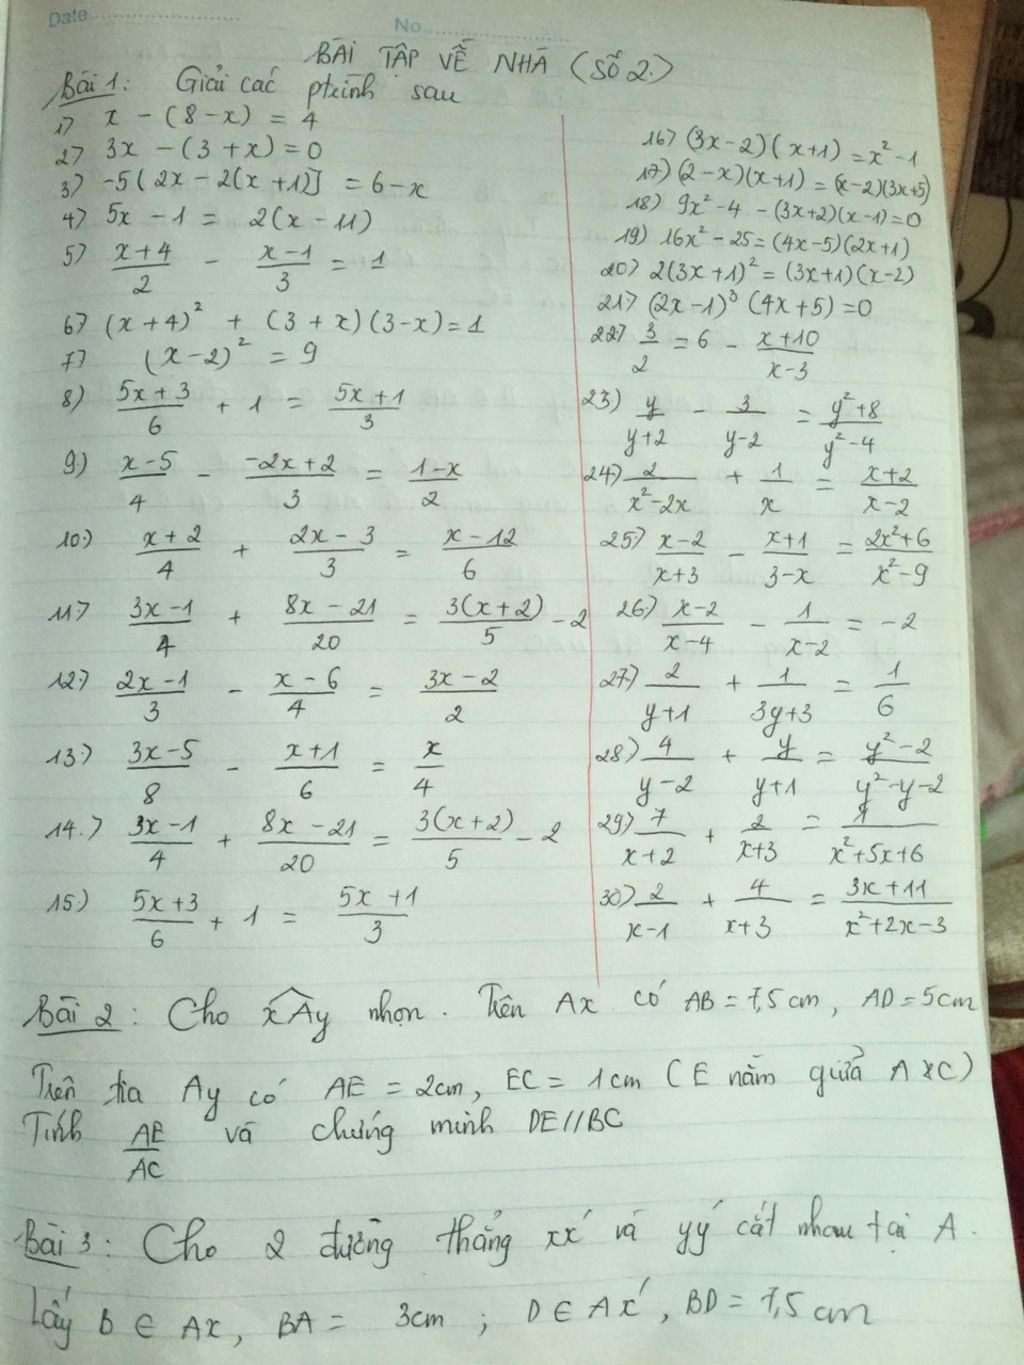 Date
No
BÀI TẬP VỀ NHÀ (Số 2.)
Bài 1: Giải các ptrình sau
1) x - (8 - x) = 4
2) 3x - (3 + x) = 0
3) -5(2x - 2(x + 1)] = 6 - x
4) 5x - 1 = 2(x - 11)
5) (x+4)/2 - (x-1)/3 = 1
6) (x + 4)² + (3 + x)(3 - x) = 1
7) (x - 2)² = 9
8) (5x+3)/6 + 1 = (5x+1)/3
9) (x-5)/4 - (-2x+2)/3 = (1-x)/2
10) (x+2)/4 + (2x-3)/3 = (x-12)/6
11) (3x-1)/4 + (8x-21)/20 = 3(x+2)/5 - 2
12) (2x-1)/3 - (x-6)/4 = (3x-2)/2
13) (3x-5)/8 - (x+1)/6 = x/4
14) (3x-1)/4 + (8x-21)/20 = 3(x+2)/5 - 2
15) (5x+3)/6 + 1 = (5x+1)/3
16) (3x-2)(x+1) = x²-1
17) (2-x)(x+1) = (x-2)(3x+5)
18) 9x²-4 - (3x+2)(x-1) = 0
19) 16x²-25 = (4x-5)(2x+1)
20) 2(3x+1)² = (3x+1)(x-2)
21) (2x-1)³ (4x+5) = 0
22) 3/2 = 6 - (x+10)/(x-3)
23) y/(y+2) - 3/(y-2) = (y²+8)/(y²-4)
24) 2/(x²-2x) + 1/x = (x+2)/(x-2)
25) (x-2)/(x+3) - (x+1)/(3-x) = (2x²+6)/(x²-9)
26) (x-2)/(x-4) - 1/(x-2) = -2
27) 2/(y+1) + 1/(3y+3) = 1/6
28) 4/(y-2) + y/(y+1) = (y²-2)/(y²-y-2)
29) 7/(x+2) + 2/(x+3) = 1/(x²+5x+6)
30) 2/(x-1) + 4/(x+3) = (3x+11)/(x²+2x-3)
Bài 2: Cho xAy nhọn. Trên Ax có AB = 7,5 cm, AD = 5cm
Trên tia Ay có AE = 2cm, EC = 1cm (E nằm giữa A và C)
Tính AE/AC và chứng minh DE//BC
Bài 3: Cho 2 đường thẳng xx' và yy' cắt nhau tại A.
Lấy B ∈ Ax, BA = 3cm ; D ∈ Ax', BD = 7,5 cm